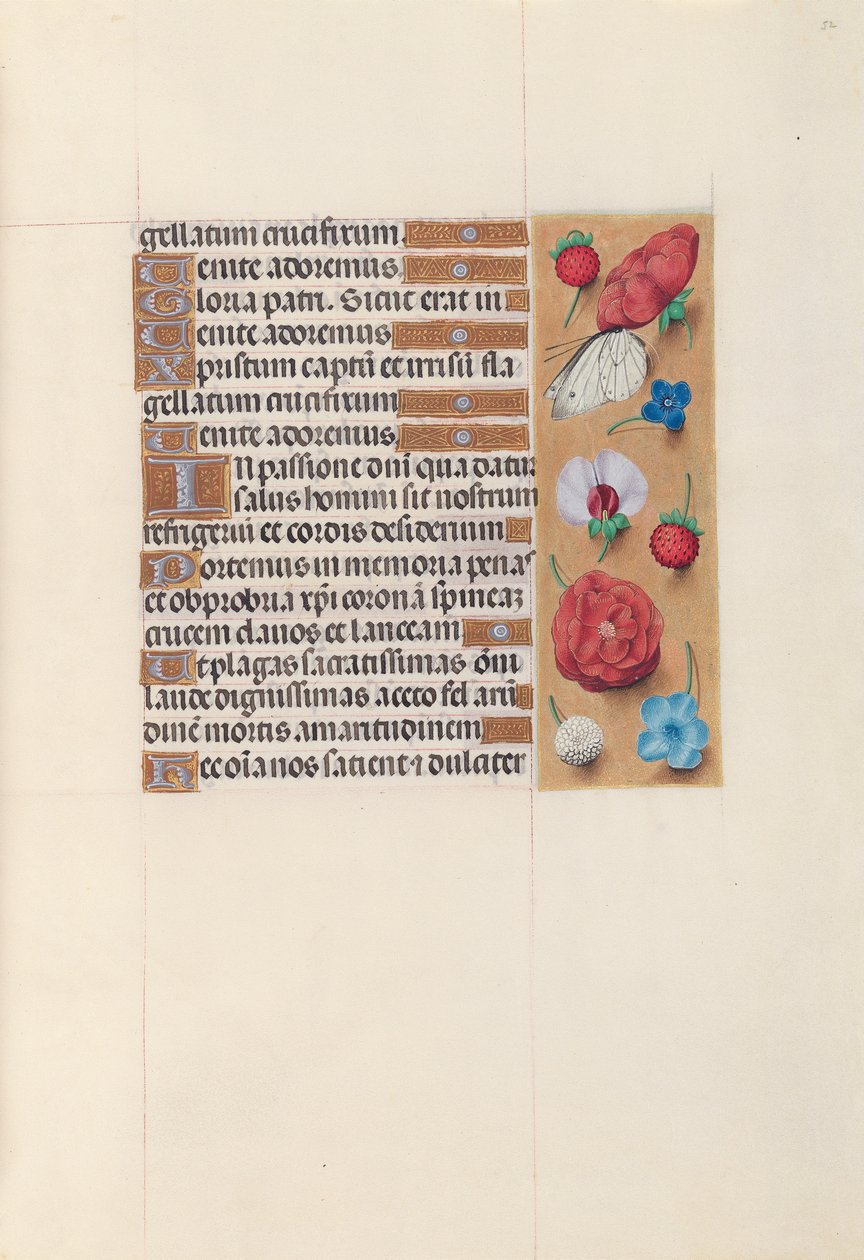 52
gellatum crucifixum.
Uenite adoremus.
Gloria patri. Sicut erat in
Uenite adoremus
Xpristum captū et irrisū fla
gellatum crucifixum
Uenite adoremus.
IN passione dnī qua datur
salus homini sit nostrum
refrigeriū et cordis desiderium
Portemus in memoria penas
et obprobria xp̄i coronā spineaʒ
crucem clauos et lanceam
Et plagas sacratissimas om̄i
laude dignissimas aceto fel arū
dinē mortis amaritudinem
Hec oīa nos satient ⁊ dulciter